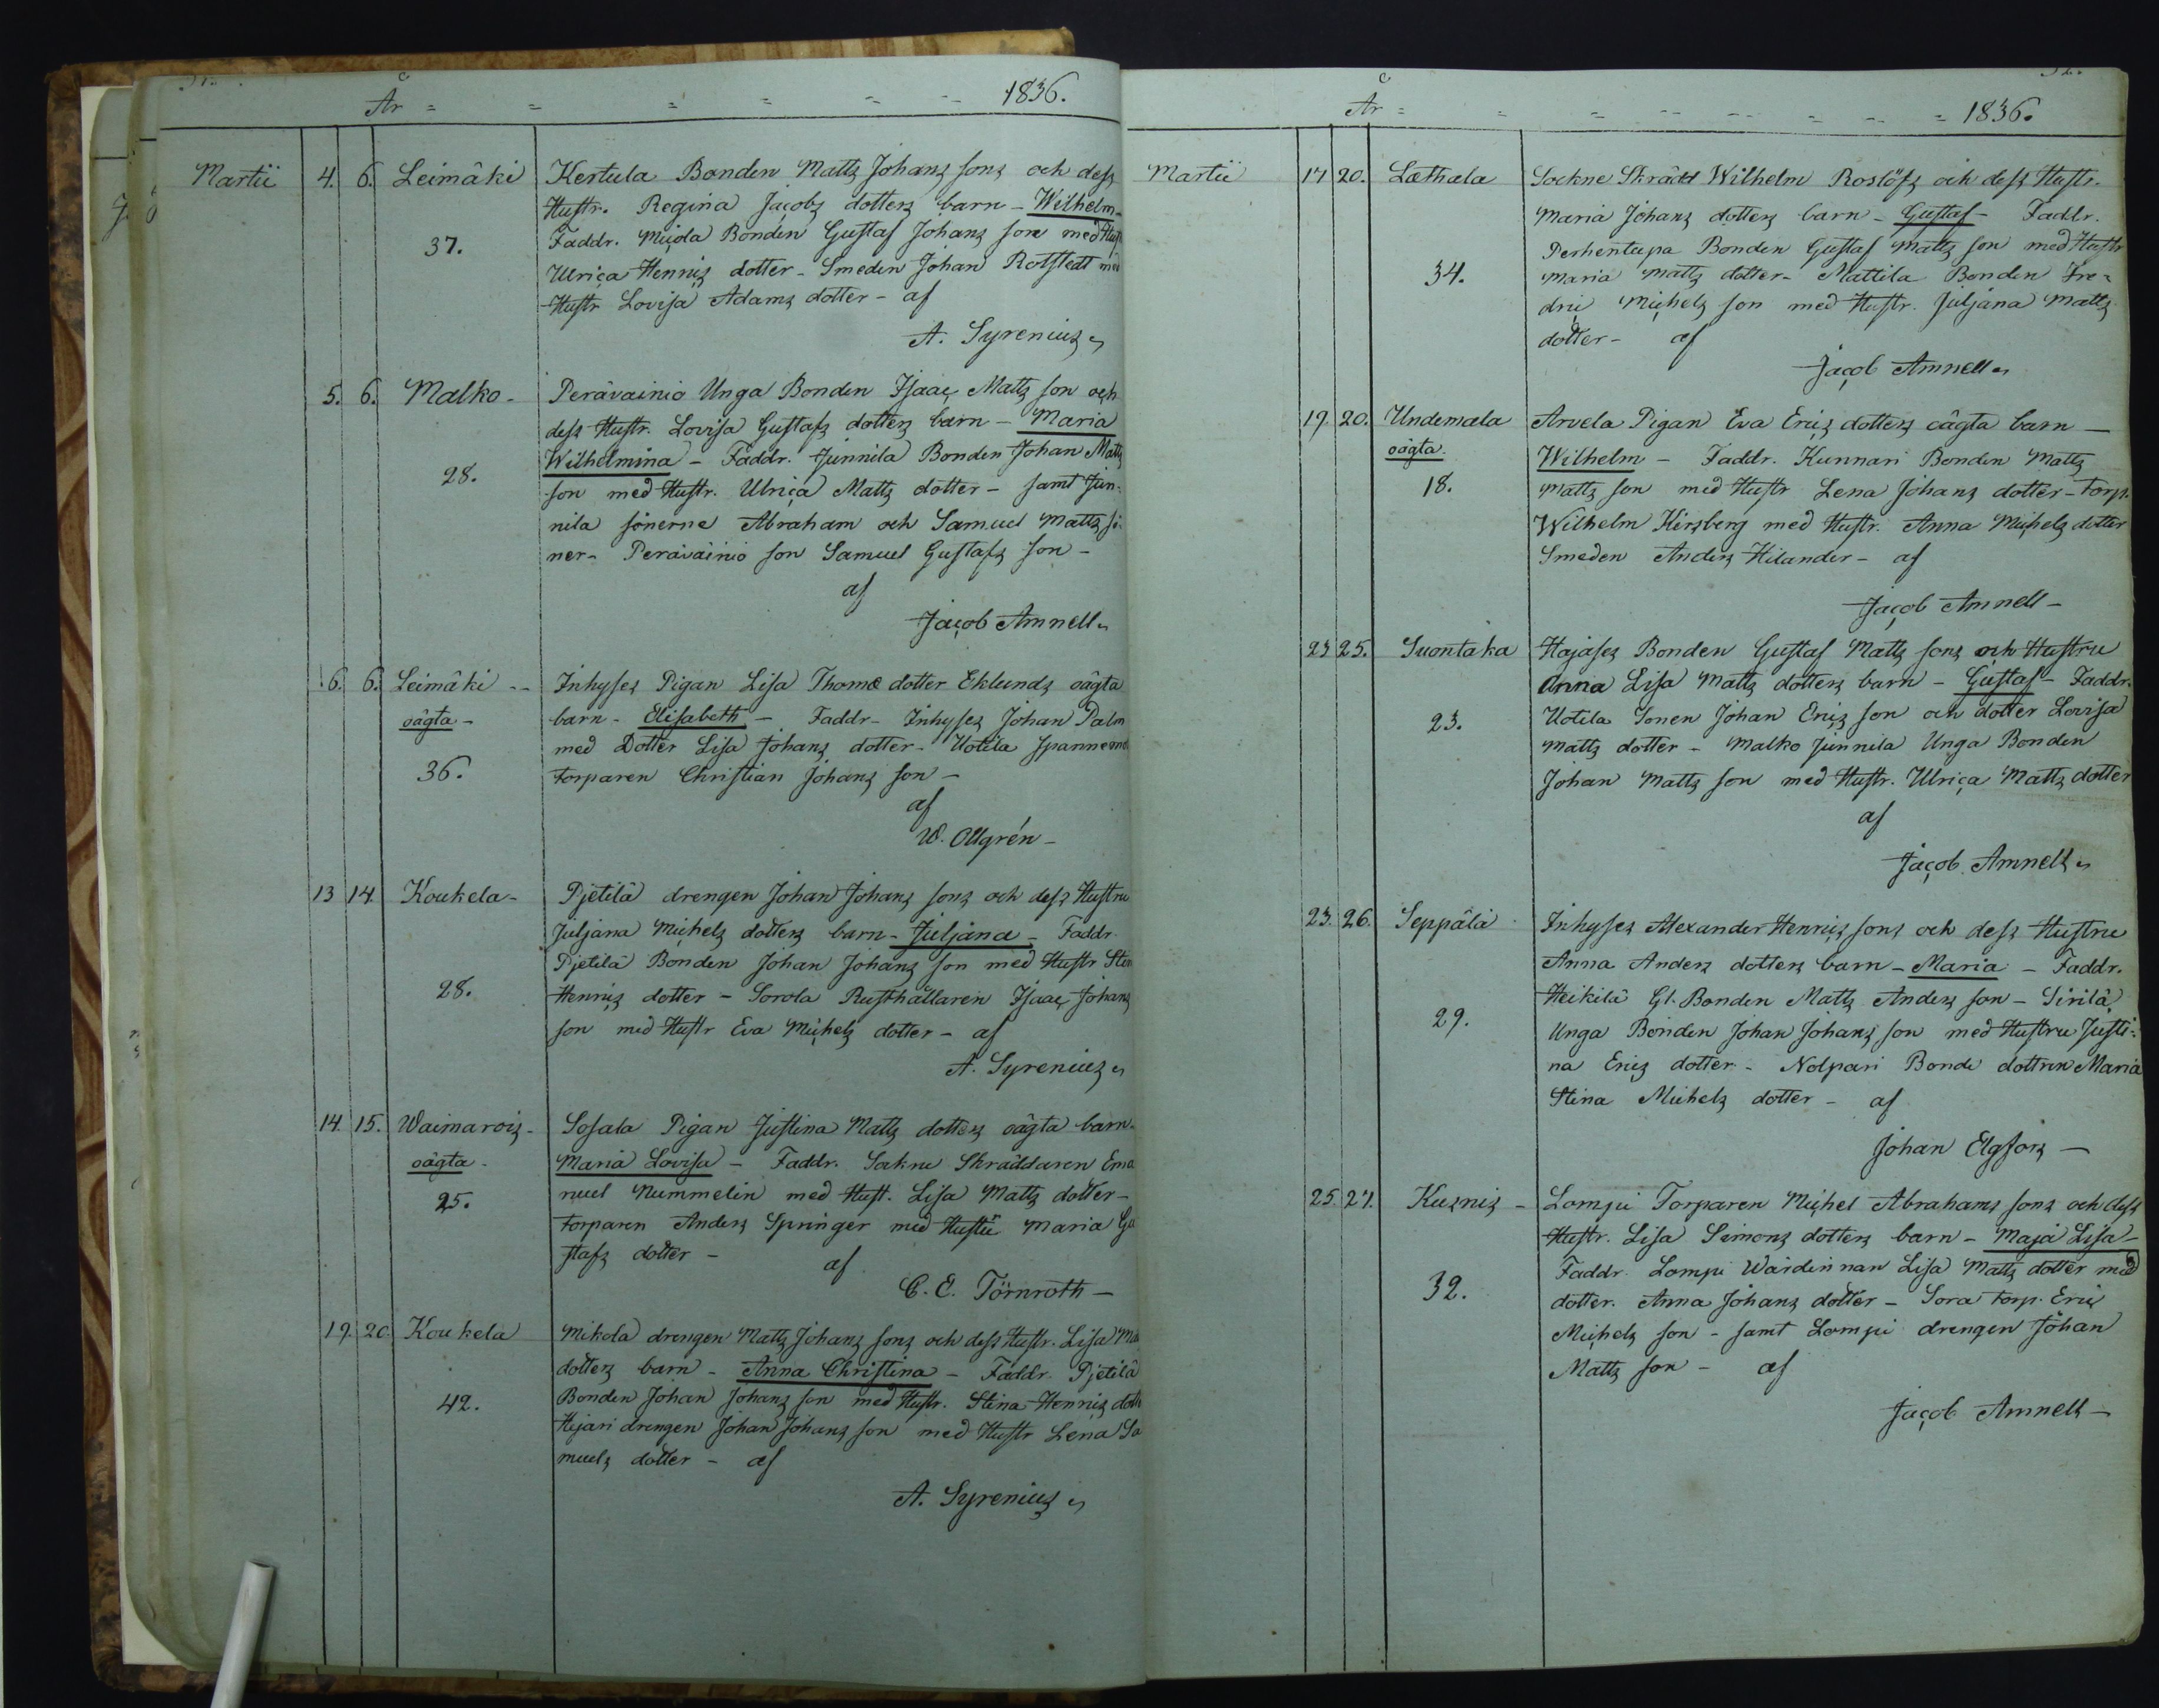 År = = = = = = 1836.
Martii 4. 6. Leimäki Kertula Bonden Matts Johans sons och dess
Hustr. Regina Jacobs dotters barn - Wilhelm -
37. Faddr. Micola Bonden Gustaf Johans son med Hust
Ulrica Henrics dotter - Smeden Johan Rotstedt med
Hustr Lovisa Adams dotter - af
A. Syrenius
5. 6. Malko - Perävainio Unga Bonden Isaac Matts son och
dess Hustr. Lovisa Gustafs dotters barn - Maria
Wilhelmina - Faddr. Junnila Bonden Johan Matts
28. son med Hustr. Ulrica Matts dotter - samt Jun=
nila sönerne Abraham och Samuel Matts sö-
ner - Perävainio son Samuel Gustafs son -
af
Jacob Amnell
6. 6. Leimäki - Inhyses Pigan Lisa Thomæ dotter Eklunds oägta
oägta - barn - Elisabeth - Faddr - Inhyses Johan Palm
med Dotter Lisa Johans dotter - Uotila
36. torparen Christian Johans son -
af
W. Ollgrén -
13 14. Koukela - Pjetilä drengen Johan Johans sons och dess Hustru
Juljana Michels dotters barn - Juljana - Faddr.
Pjetilä Bonden Johan Johans son med Hustr Stin
28. Henrics dotter - Sorola Rusthållaren Isaac Johans
son med Hustr Eva Michels dotter - af
A. Syrenius
14. 15. Waimarois - Sosala Pigan Justina Matts dotters oägta barn -
oägta - Maria Lovisa - Faddr. Sockne Skräddaren Ema
25. nuel Nummelin med Hust. Lisa Matts dotter -
torparen Anders Springer med Hustru Maria Gu
stafs dotter - af
C. E. Törnroth -
19. 20. Koukela Mikola drengen Matts Johans sons och dess Hustr. Lisa
dotters barn - Anna Christina - Faddr. Pjetilä
42. Bonden Johan Johans son med Hustr. Stina Henrics dott
Hejari drengen Johan Johans son med Hustr Lena Sa
muels dotter - af
A. Syrenius
År = = = = = = 1836.
Martii 17 20. Laethala Sockne Skrädd Wilhelm Roslöfs och dess Hustr.
Maria Johans dotters barn - Gustaf - Faddr.
Perhentupa Bonden Gustaf Matts son med Hustr
34. Maria Matts dotter - Mattila Bonden Fre=
dric Michels son med Hustr. Juljana Matts
dotter - af
Jacob Amnell
19. 20. Undemala Arvela Pigan Eva Erics dotters oägta barn -
oägta. Wilhelm - Faddr. Kunnari Bonden Matts
18. Matts son med Hustr Lena Johans dotter - Torp.
Wilhelm Kirsberg med Hustr. Anna Michels dotter
Smeden Anders Hilander - af
Jacob Amnell -
23 25. Suontaka Hajases Bonden Gustaf Matts sons och Hustru
Anna Lisa Matts dotters barn - Gustaf - Faddr.
23. Uotila Sonen Johan Erics son och dotter Lovisa
Matts dotter - Malko Junnila Unga Bonden
Johan Matts son med Hustr. Ulrica Matts dotter
af
Jacob Amnell
23. 26. Seppälä Inhyses Alexander Henrics sons och dess Hustru
Anna Anders dotters barn - Maria - Faddr.
Heikilä Gl. Bonden Matts Anders son - Sirilä
29. Unga Bonden Johan Johans son med Hustru Justi=
na Erics dotter - Nolpari Bonde dottren Maria
Stina Michels dotter - af
Johan Elgfors -
25. 27. Kusnis - Lompi Torparen Michel Abrahams sons och dess
Hustr. Lisa Simons dotters barn - Maja Lisa -
Faddr. Lompi Wärdinnan Lisa Matts dotter med
32. dotter. Anna Johans dotter - Sora torp. Eric
Michels son - samt Lompi drengen Johan
Matts son - af
Jacob Amnell -